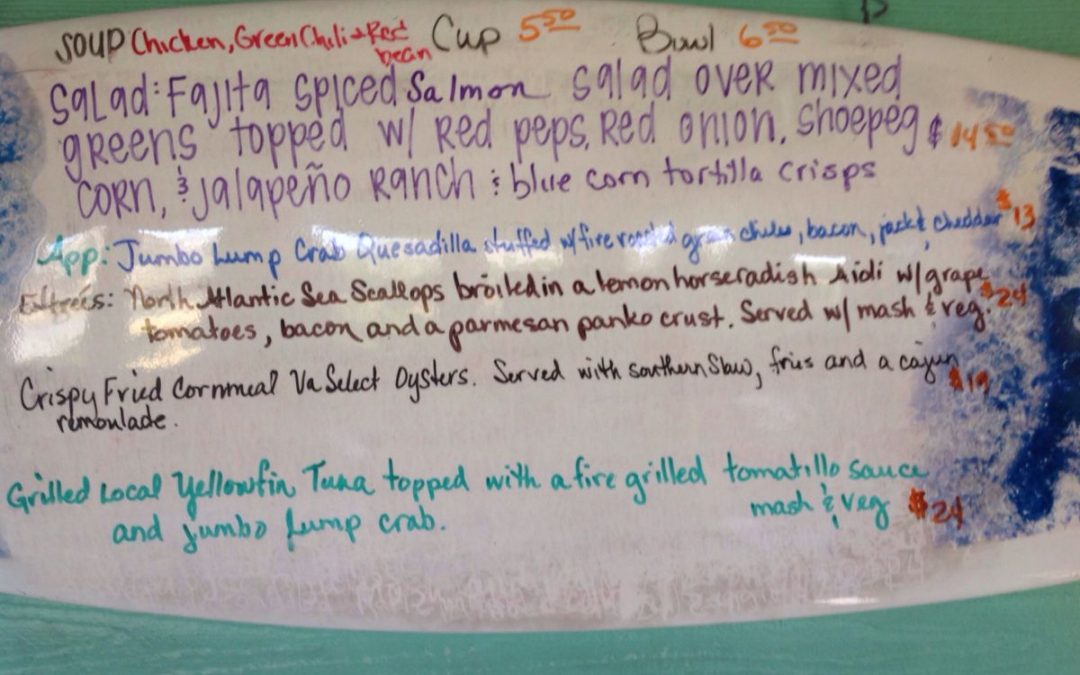 SOUP Chicken, Green Chili & Red bean Cup 5.50 Bowl 6.50
Salad: Fajita Spiced Salmon salad over mixed
greens topped w/ Red peps, Red onion, Shoepeg $14.50
corn, & jalapeño Ranch & blue corn tortilla crisps
App: Jumbo Lump Crab Quesadilla stuffed w/ fire roasted green chiles, bacon, jack & cheddar $13
Entrees: North Atlantic Sea Scallops broiled in a lemon horseradish Aidi w/ grape
tomatoes, bacon and a parmesan panko crust. Served w/ mash & veg. $24
Crispy Fried Cornmeal Va Select Oysters. Served with southern Slaw, fries and a cajun
remoulade. $19
Grilled Local Yellowfin Tuna topped with a fire grilled tomatillo sauce
and Jumbo lump crab. mash & veg $24